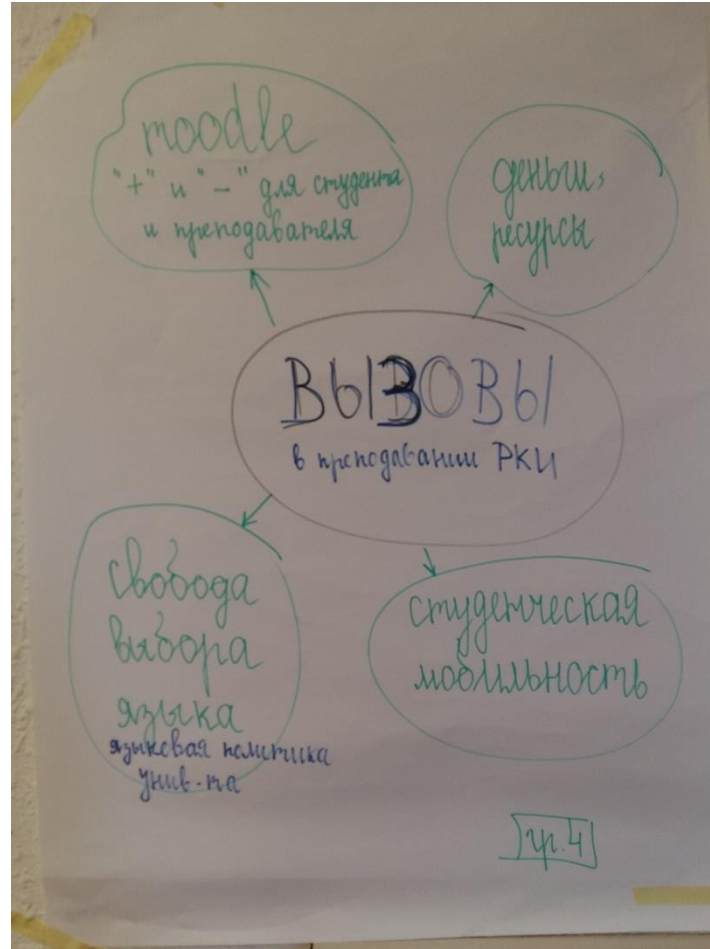 moodle
"+" и "-" для студента
и преподавателя
деньги,
ресурсы
ВЫЗОВЫ
в преподавании РКИ
свобода
выбора
языка
языковая политика
унив-та
студенческая
мобильность
гр.4